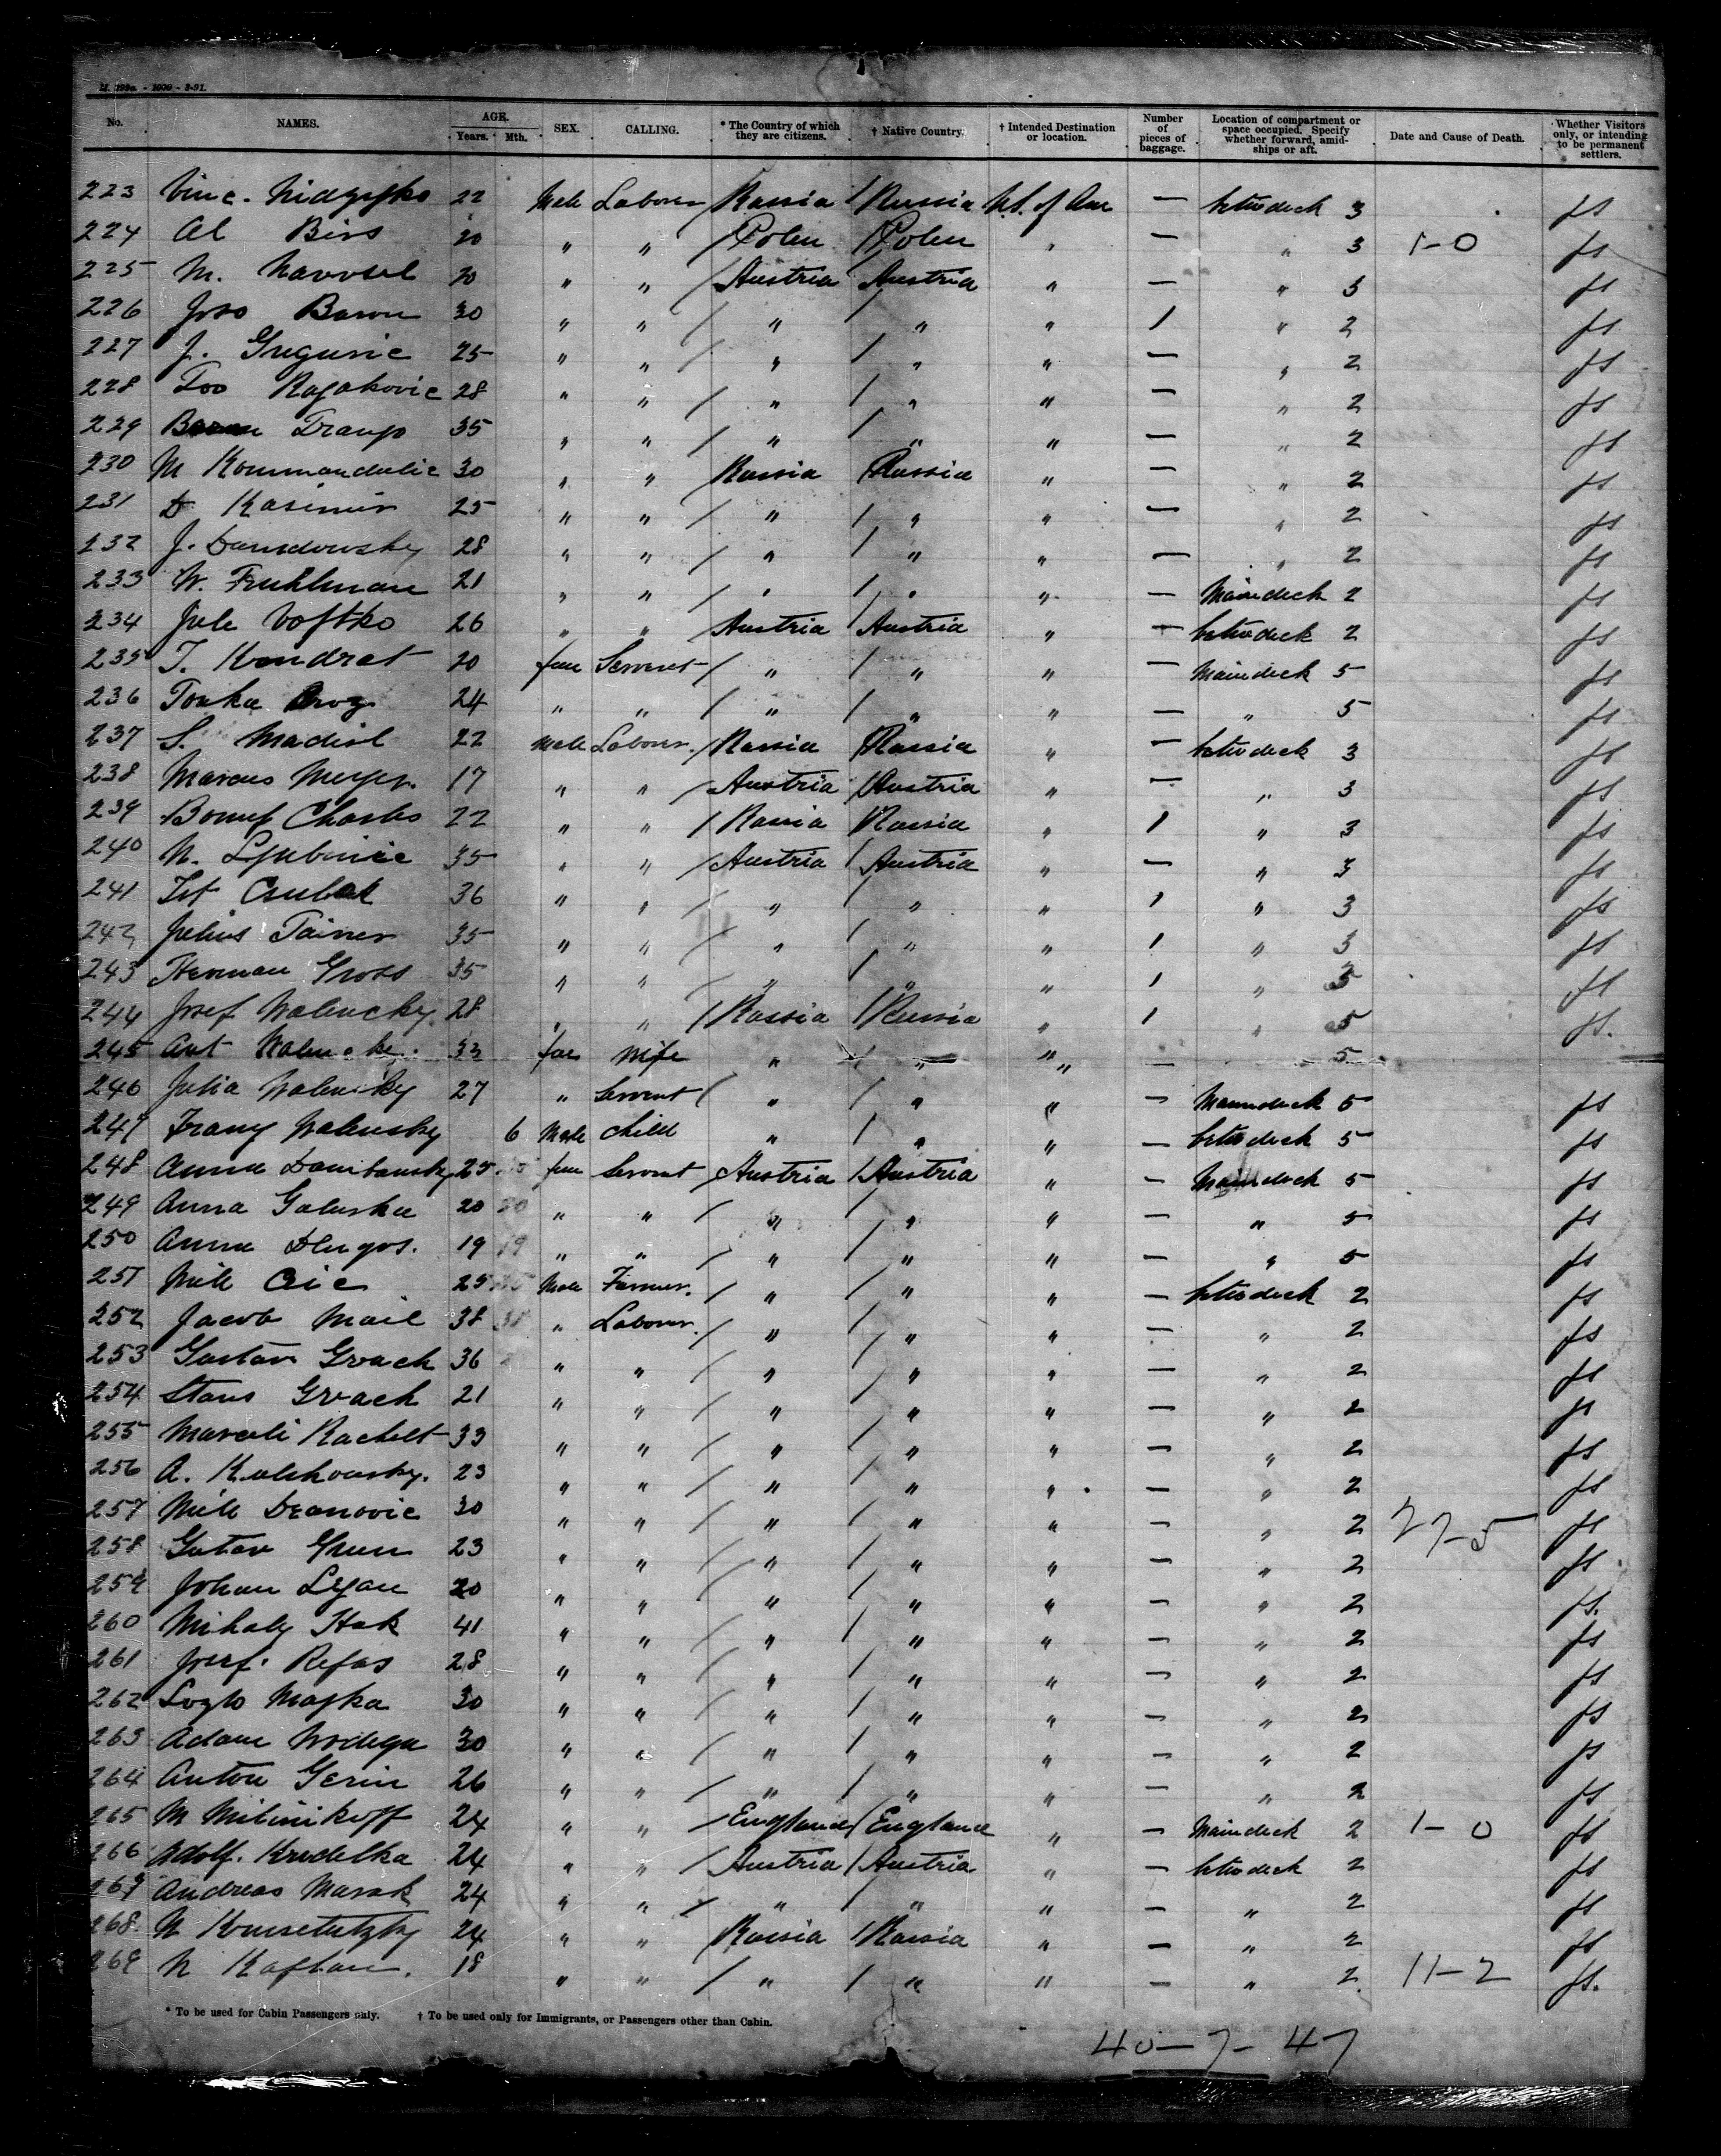 No. NAMES. AGE. Years. Mth. SEX. CALLING. * The Country of which they are citizens. † Native Country. † Intended Destination or location. Number of pieces of baggage. Location of compartment or space occupied. Specify whether forward, amidships or aft. Date and Cause of Death. Whether Visitors only, or intending to be permanent settlers.
223 Vinc. 22 Male Laborer / Russia / Russia U.S. of Am — betw deck 3 fs
224 Al Birs 20 " " / Polen / Polen " — " 3 1-0 fs
225 M. Navosel 20 " " / Austria / Austria " — " 3 fs
226 Joso Baron 30 " " / " / " " 1 " 2 fs
227 J. Grguric 25 " " / " / " " — " 2 fs
228 Rajakovic 28 " " / " / " " — " 2 fs
229 35 " " / " / " " — " 2 fs
230 M 30 " " / Russia / Russia " — " 2 fs
231 D. Kasimir 25 " " / " / " " — " 2 fs
232 J. 28 " " / " / " " — " 2 fs
233 W. Fruhlman 21 " " / " / " " — Maindeck 2 fs
234 26 " " / Austria / Austria " — betw deck 2 fs
235 T. Kondrat 20 fem Servant / " / " " — Maindeck 5 fs
236 24 " " / " / " " — " 5 fs
237 S. 22 Male Laborer. / Russia / Russia " — betw deck 3 fs
238 Marcus Meyer. 17 " " / Austria / Austria " — " 3 fs
239 Charles 22 " " / Russia / Russia " 1 " 3 fs
240 N. Ljubinic 35 " " / Austria / Austria " — " 3 fs
241 36 " " / " / " " 1 " 3 fs
242 Julius 35 " " / " / " " 1 " 3 fs
243 Herman Gross 35 " " / " / " " 1 " fs
244 Josef Walencky 28 " " / Russia / Russia " 1 " 5 fs.
245 Ant 33 fem Wife " / " " — 5
246 Julia 27 " Servant / " / " " — Maindeck 5 fs
247 Franz Walensky 6 Male Child " / " " — betw deck 5 fs
248 Anna 25 fem Servant / Austria / Austria " — Maindeck 5 fs
249 Anna Galuska 20 " " / " / " " — " 5 fs
250 Anna Dlugos. 19 " " / " / " " — " 5 fs
251 Mile Cic 25 Male Farmer. / " / " " — betw deck 2 fs
252 Jacob Mail 38 " Laborer. / " / " " — " 2 fs
253 Gustav Groach 36 " " / " / " " — " 2 fs
254 Stans Groach 21 " " / " / " " — " 2 fs
255 Marceli Rachelt 33 " " / " / " " — " 2 fs
256 A. 23 " " / " / " " — " 2 fs
257 Mile Deanovic 30 " " / " / " " — " 2 27-5 fs
258 Gutav Grun 23 " " / " / " " — " 2 fs
259 Johan Lejan 20 " " / " / " " — " 2 fs.
260 Mihaly Hak 41 " " / " / " " — " 2 fs
261 Josef. Refas 28 " " / " / " " — " 2 fs
262 Majka 30 " " / " / " " — " 2 fs
263 Adam 30 " " / " / " " — " 2 fs
264 Anton Gerin 26 " " / " / " " — " 2 fs
265 M 24 " " / England / England " — Maindeck 2 1-0 fs
266 Adolf. Krudelka 24 " " / Austria / Austria " — betw deck 2 fs
267 Andreas Marak 24 " " / " " " — " 2 fs
268. N 24 " " / Russia / Russia " — " 2 fs
269 N Kaftan. 18 " " / " / " " — " 2 11-2 fs.
* To be used for Cabin Passengers only. † To be used only for Immigrants, or Passengers other than Cabin.
40-7-47